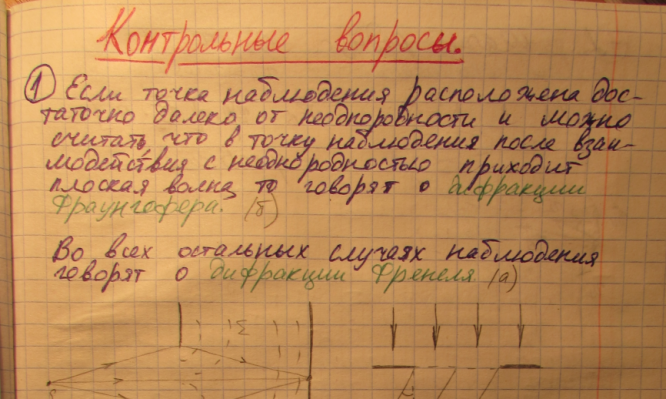 Контрольные вопросы.
1 Если точка наблюдения расположена дос-
таточно далеко от неоднородности и можно
считать, что в точку наблюдения после взаи-
модействия с неоднородностью приходит
плоская волна, то говорят о дифракции
Фраунгофера. (б)
Во всех остальных случаях наблюдения
говорят о дифракции Френеля (а)
Σ